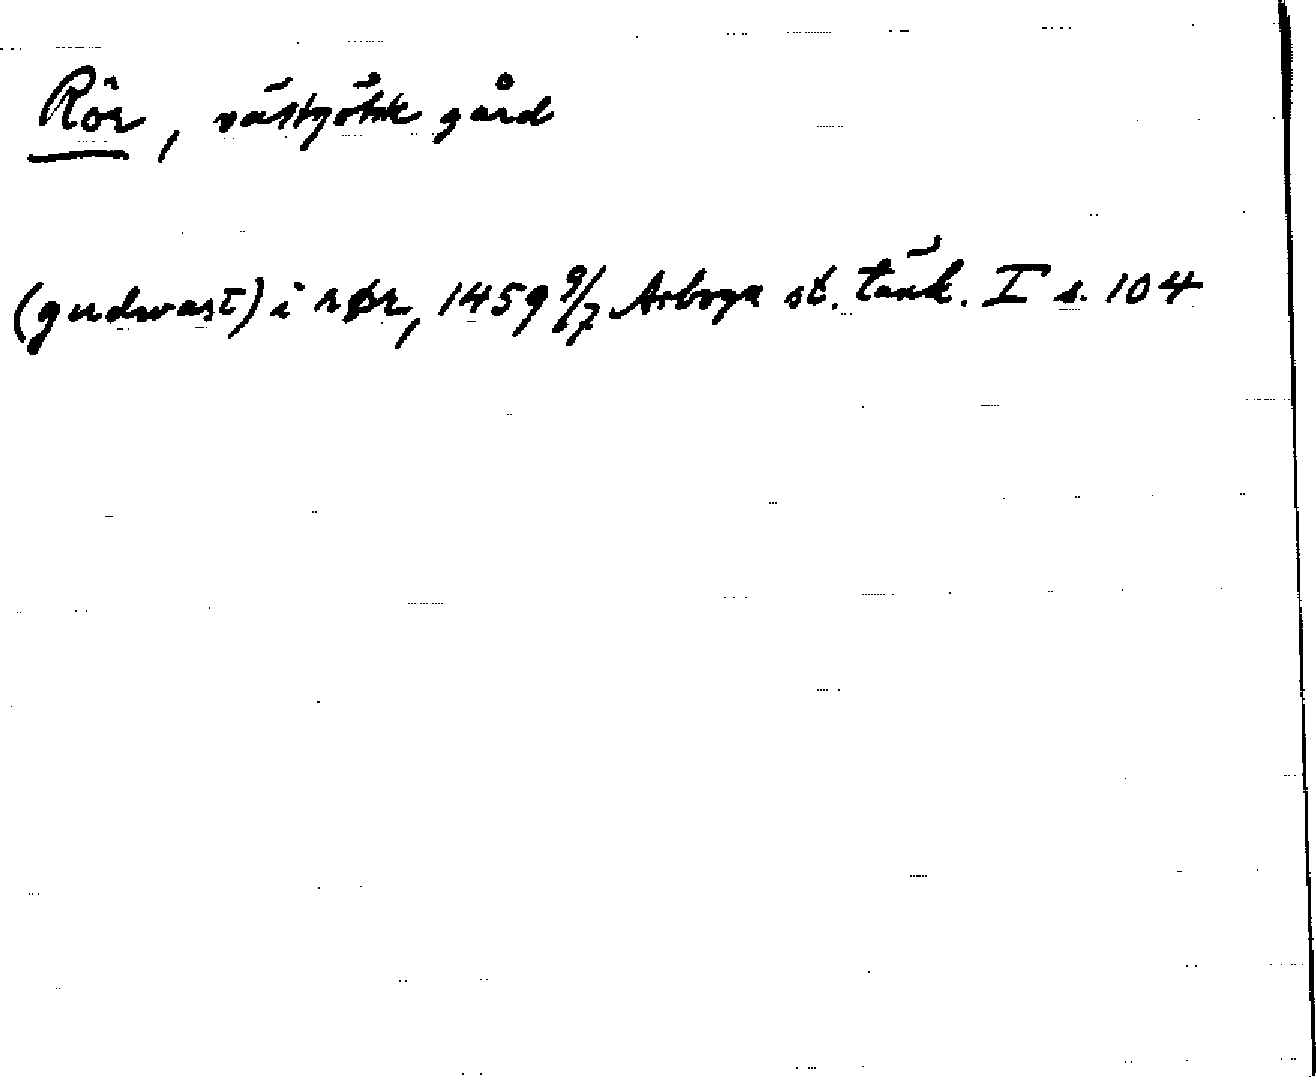 Rör, västgötsk gård
(gudwast) i rør, 1459 9/7 Arboga st. tänk. I s. 104